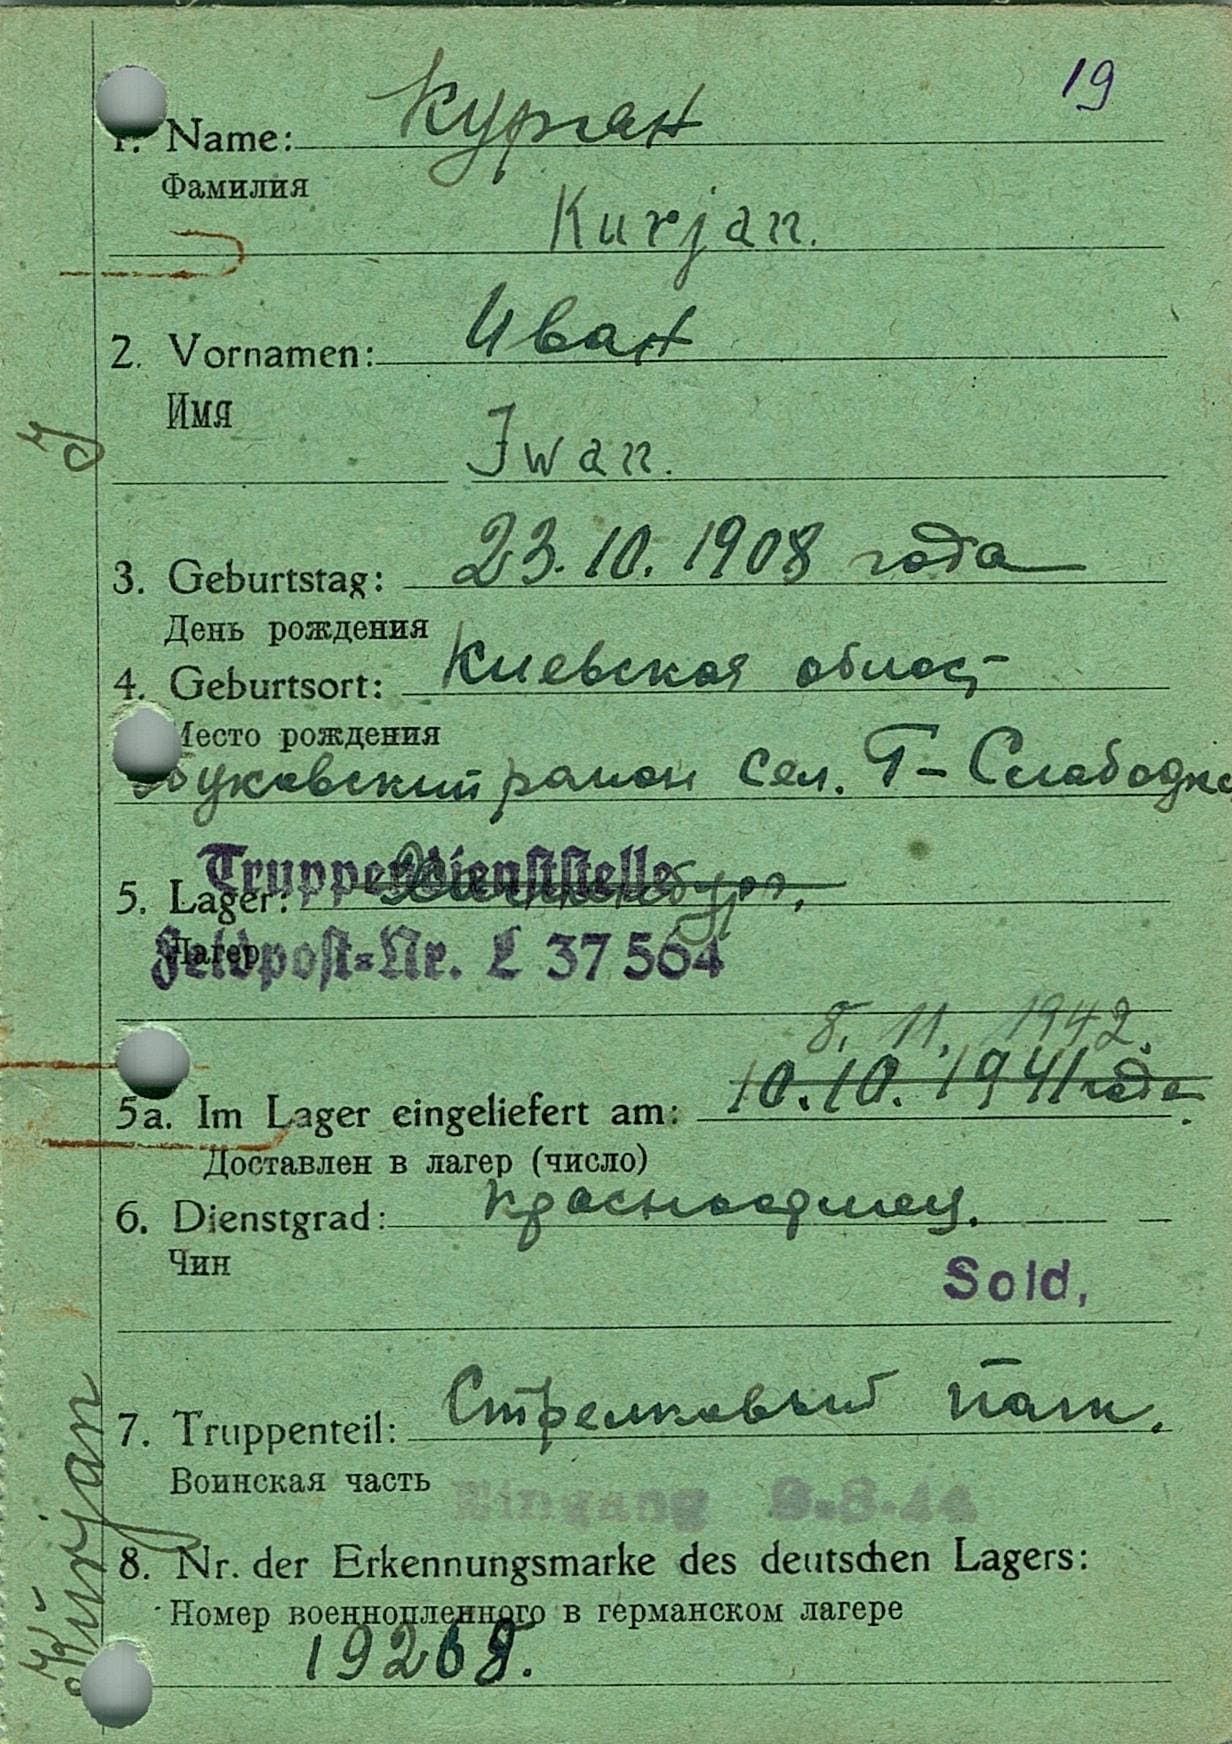 19
1. Name: Курган
Фамилия
Kurjan.
2. Vornamen: Иван
Имя
Iwan.
J
3. Geburtstag: 23.10.1908 года
День рождения
4. Geburtsort: Киевская област
Место рождения
район сел. Г-Слабодка
Truppendienststelle
5. Lager:
Лагер
Feldpost-Nr. L 37564
8. 11. 1942.
5a. Im Lager eingeliefert am: 10.10.1941 года.
Доставлен в лагер (число)
6. Dienstgrad: красноармец.
Чин
Sold,
7. Truppenteil: Стрелковый полк.
Воинская часть
Eingang 9.8.44
8. Nr. der Erkennungsmarke des deutschen Lagers:
Номер военнопленного в германском лагере
19268.
Kŭrjan